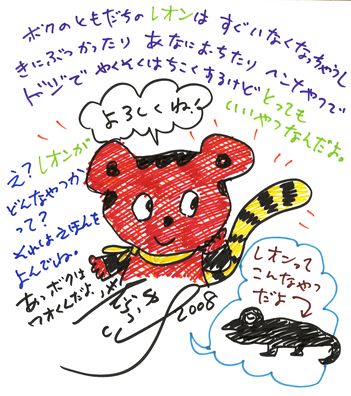 ボクのともだちのレオンは すぐいなくなっちゃうし
きにぶつかったり あなにおちたり ヘンなヤツで
ドジで やくそくはちこくするけど とっても
いいやつなんだよ。
よろしくね!
え?レオンが
どんなやつか
って?
それはえほんを
よんでね。
あっボクは
ワオくんだよ
レオンって
こんなやつ
だよ
2008